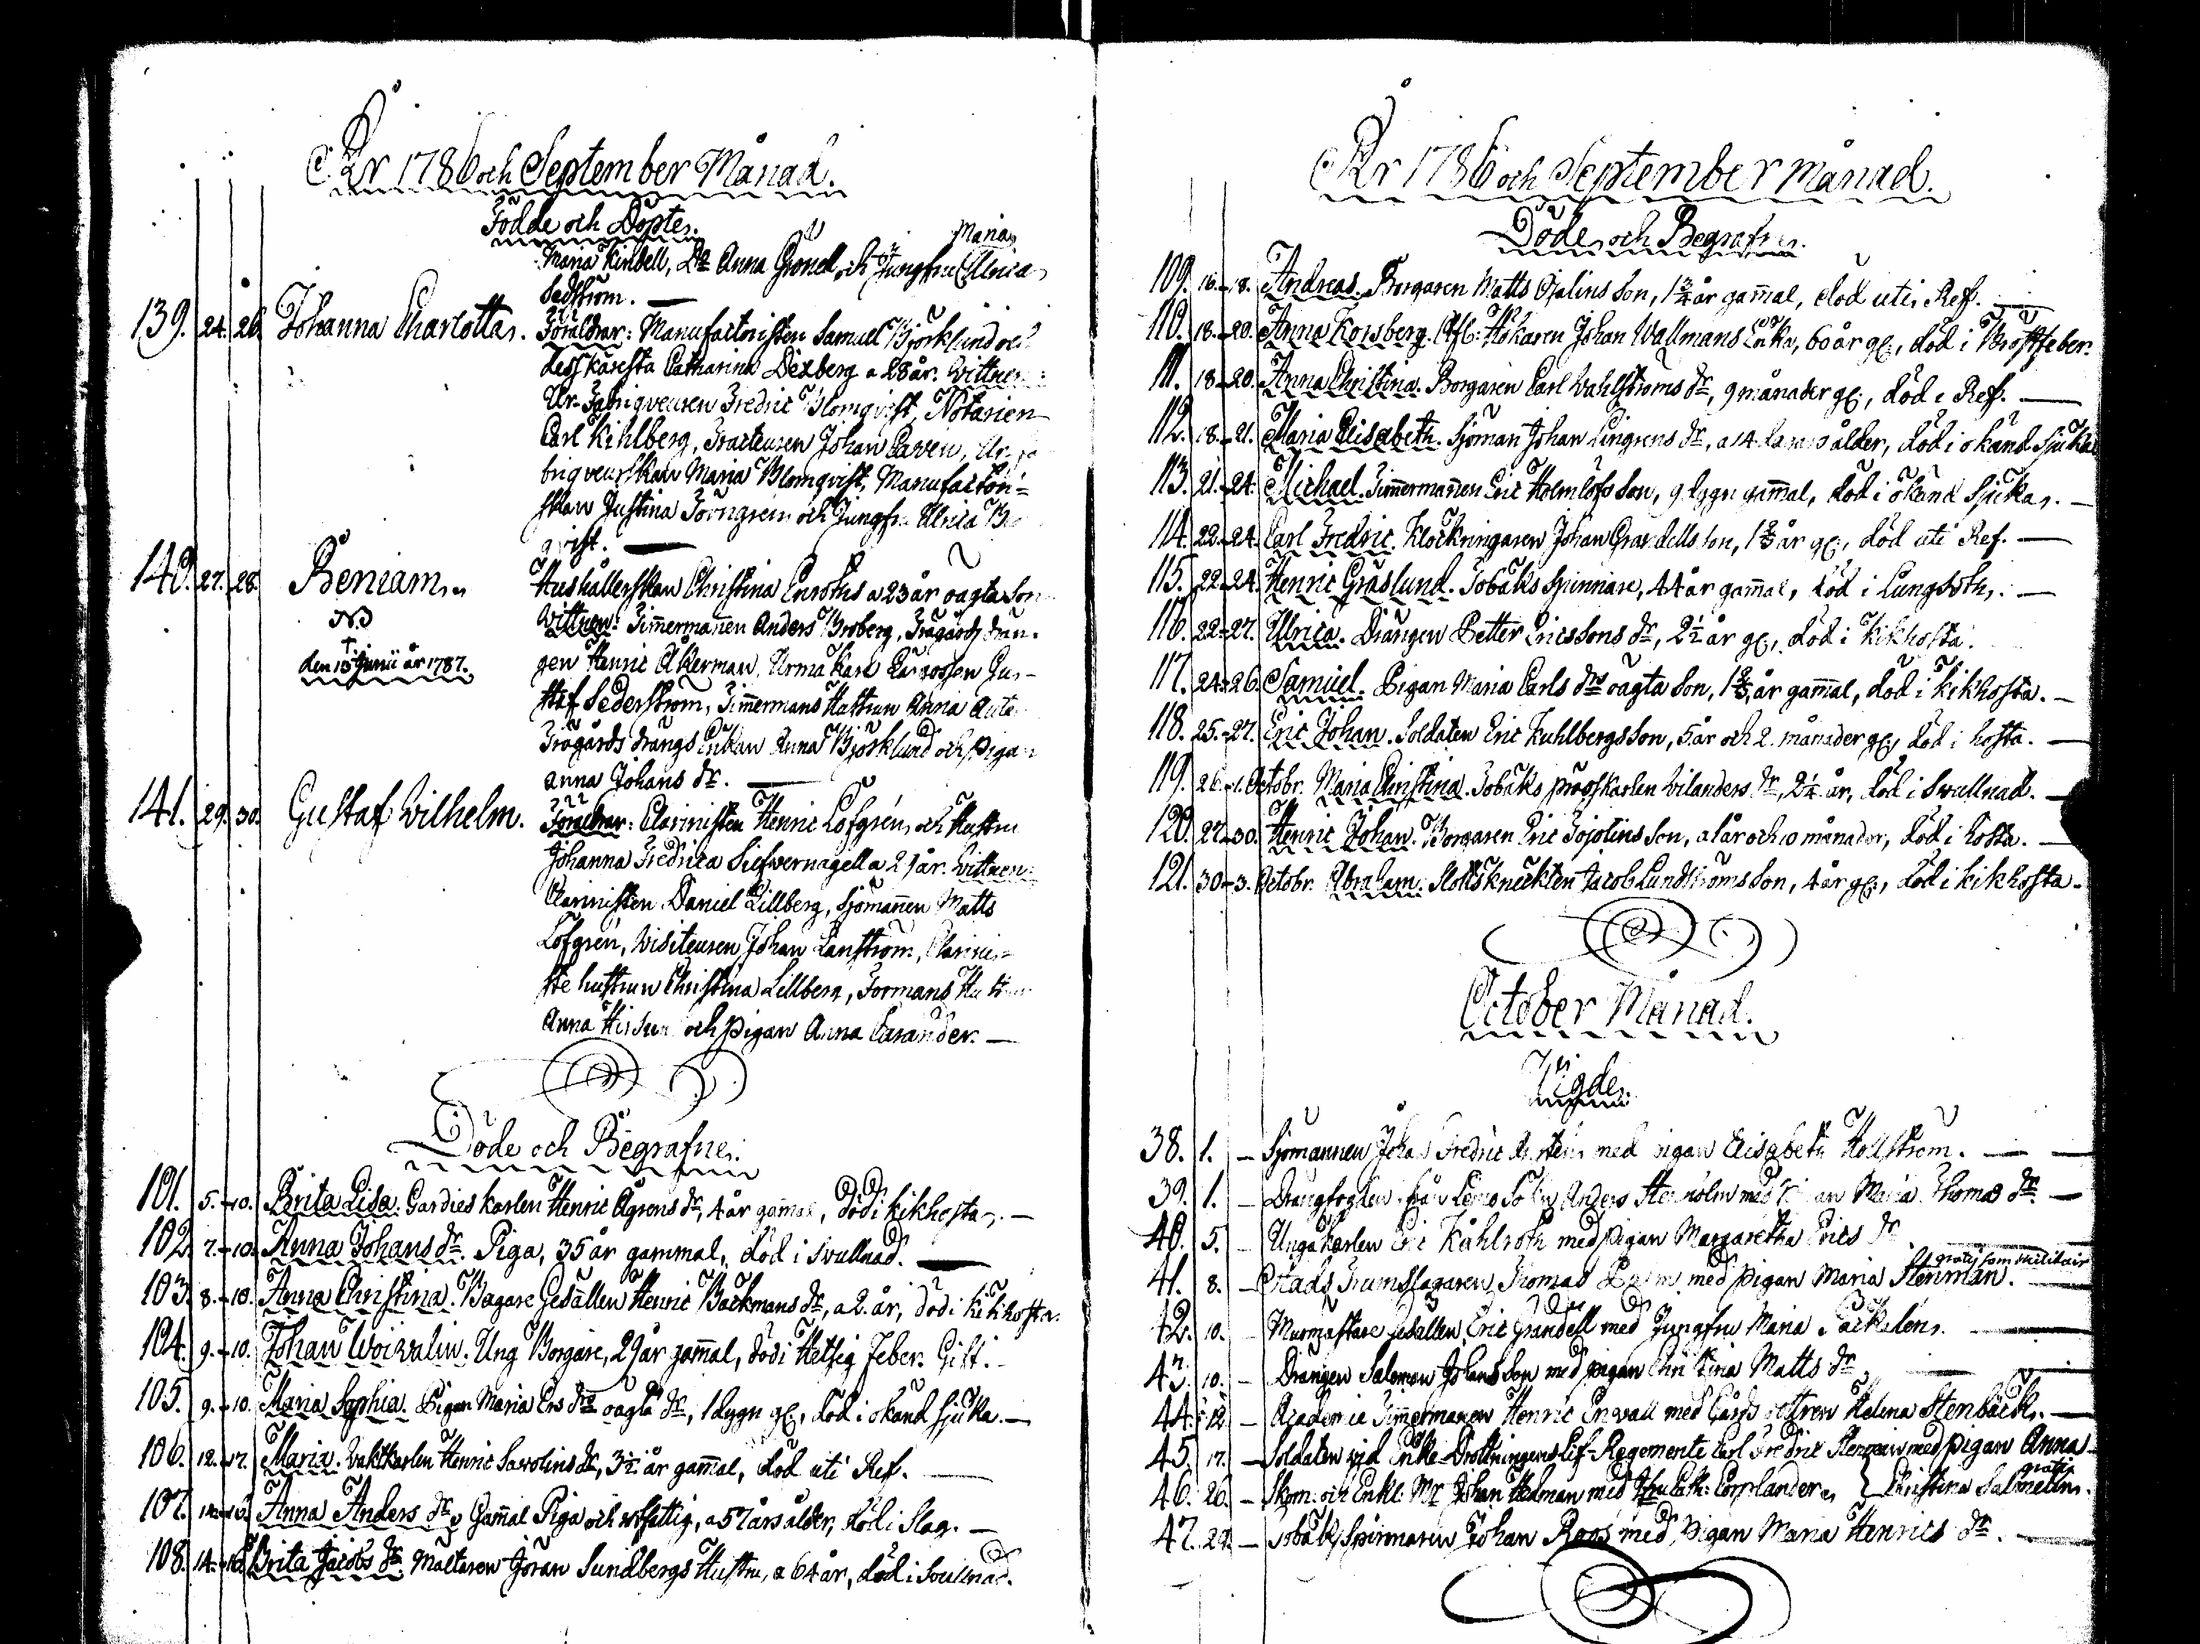 År 1786 och September Månad.
Födde och Döpte.
Maria
Maria Kindell, Dr Anna Gronel, och Jungfru Ulrica
Sedstrom. —
139. 24. 26. Johanna Charlotta. Föräldrar: Manufactoristen Samuel Björklund och
dess käresta Catharina Dexberg a 28 år. Wittnen:
Ur-Fabriqveuren Fredric Blomqvist, Notarien
Carl Kihlberg, Johan
briqveurskan Maria Blomqvist, Manufactori=
skan Justina Torngren och Jungfr. Ulrica
qvist. —
140. 27. 28. Beniam. Hushållerskan Christina Enroths a 23 år oägta Son
NB Wittnen: Timmermannen Anders Broberg, Trägårds drän-
† gen Henric Åkerman,
den 15 Junii år 1787. Gu-
staf Sederström, Timmermans Hustrun Anna
Trägårds drängs Enkan Anna Björklund och Pigan
Anna Johans dr. —
141. 29. 30. Gustaf Wilhelm. Föräldrar: Clarinisten Henric Löfgrén, och Hustru
Johanna Fredrica Siefvernagel a 29 år. Wittnen:
Clarinisten Daniel Lillberg, Sjömannen Matts
Löfgrén, Visiteuren Johan Lanström, Clarini=
ste hustrun Christina Lillberg, Formans Hustrun
Anna och Pigan Anna Carander. —
Döde och Begrafne.
101. 5.-10. Brita Lisa. Gardies karlen Henric Ågrens dr, 4 år gammal, död i kikhosta. —
102. 7.-10. Anna Johans dr. Piga, 35 år gammal, död i Svullnad. —
103. 8.-10. Anna Christina. Bagare Gesällen Henric Backmans dr, a 2. år, död i kikhosta.
104. 9.-10. Johan Woivalin. Ung Borgare, 29 år gam̅al, död i Hetsig Feber. Gift.
105. 9.-10. Maria Sophia. Pigan Maria Ers drs oägta dr, 1 dygn gl., död i okänd sjuka. —
106. 12.-17. Maria. Vaktkarlen Henric Savolins dr, 3½ år gam̅al, död uti Ref. —
107. Anna Anders dr, Gam̅al Piga och utfattig, a 57 års ålder, död i Slag. —
108. 14.-16. Brita Jacobs dr. Mältaren Jöran Sundbergs Hustru, a 64 år, död i Svullnad.
År 1786 och September Månad.
Döde och Begrafne.
109. 16.-18. Andreas. Borgaren Matts Ojalins Son, 1¾ år gam̅al, död uti Ref. —
110. 18.-20. Anna Korsberg. Afl: Hökaren Johan Wallmans Enka, 60 år gl., död i Bröstfeber.
111. 18-20. Anna Christina. Borgaren Carl Wahlströms dr, 9 månader gl., död i Ref. —
112. 18.-21. Maria Elisabeth. Sjöman Johan Lingrens dr, a 14 dagars ålder, död i okänd Sjuka
113. 21.-24. Michael. Tim̅ermannen Eric Holmlöfs Son, 9 dygn gam̅al, död i okänd Sjuka. —
114. 22-24. Carl Fredric. Klockringaren Johan Grandells Son, 1⅔ år gl., död uti Ref. —
115. 22-24. Henric Gräslund. Tobaks Spinnare, 44 år gam̅al, död i Lungsot. —
116. 22-27. Ulrica. Drängen Petter Ericssons dr, 2½ år gl., död i kikhosta.
117. 24-26. Samuel. Pigan Maria Carls drs oägta Son, 1⅔ år gam̅al, död i kikhosta. —
118. 25.-27. Eric Johan. Soldaten Eric Kuhlbergs Son, 5 år och 2. månader gl., död i hosta. —
119. 26.-1. Octobr. Maria Christina. Tobaks Wilanders dr, 2¼ år, död i Svullnad. —
120. 27-30. Henric Johan. Borgaren Eric Son, a 1 år och 10 månader, död i hosta. —
121. 30-3. Octobr. Abraham. Slottskneckten Jacob Lundströms Son, 4 år gl., död i kikhosta.
October Månad.
Vigde.
38. 1. — Sjömannen Johan Fredric med Pigan Elisabeth Hollström. —
39. 1. — Anders Stenholm med Pigan Maria Thomas dr. —
40. 5. — Ungakarlen Eric Kåhlroth med Pigan Margaretha Erics dr
gratis som Militair
41. 8. — Stads Trumslagaren Thomas med Pigan Maria Stenman. —
42. 10. — Murmästare Gesällen Eric Grandell med Jungfru Maria —
43. 10. — Drängen Salomon Johansson med Pigan Christina Matts dr —
44. 12. — Academie Tim̅ermannen Henric med Helena Stenbäck. —
45. 17. — Soldaten vid Enke-Drottningens Lif-Regemente Carl Fredric med Pigan Anna
gratis
46. 26. — Skom: och Enkl: Mr Johan Hedman med Cath: } Christina Salmelin.
47. 29. — Tobaks Spinnaren Johan Roos med Pigan Maria Henrics dr. —